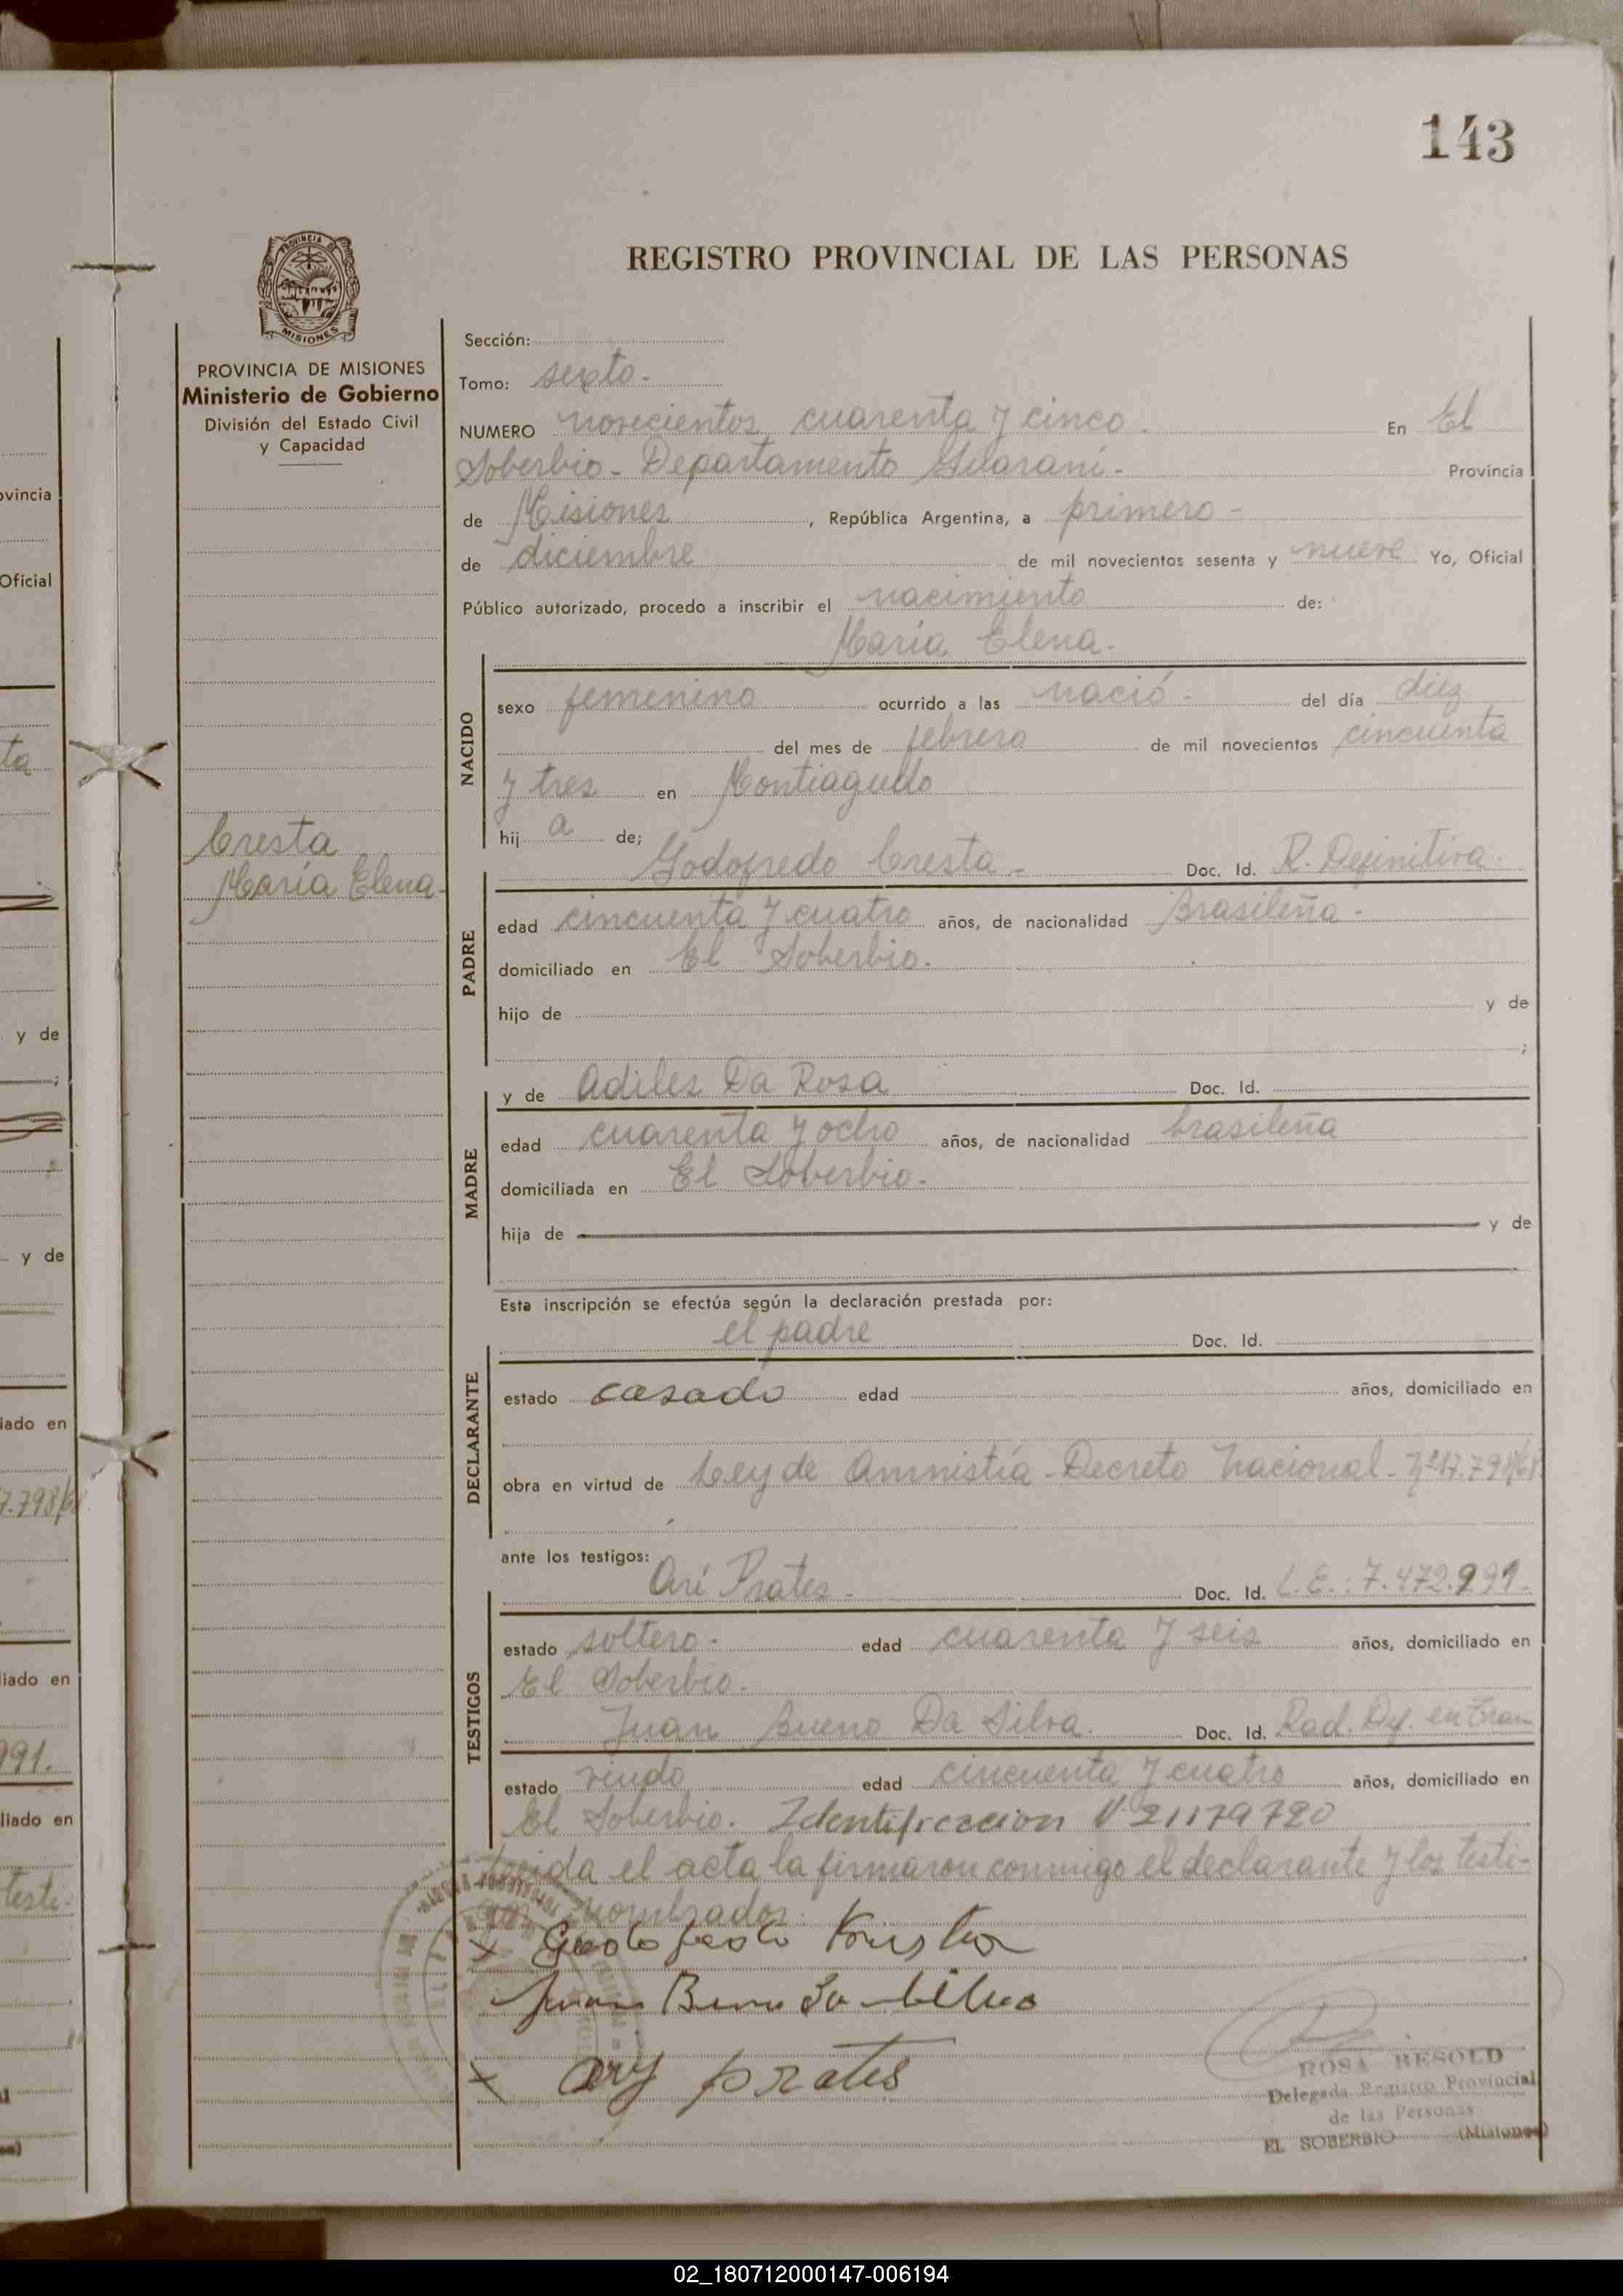 143
PROVINCIA DE
MISIONES
REGISTRO PROVINCIAL DE LAS PERSONAS
PROVINCIA DE MISIONES
Ministerio de Gobierno
División del Estado Civil
y Capacidad
Cresta
María Elena-
Sección:
Tomo: sexto-
NUMERO novecientos cuarenta y cinco. En El
Soberbio- Departamento Guaraní- Provincia
de Misiones, República Argentina, a primero-
de diciembre de mil novecientos sesenta y nueve Yo, Oficial
Público autorizado, procedo a inscribir el nacimiento de:
María Elena.
NACIDO
sexo femenino ocurrido a las nació- del día diez
del mes de febrero de mil novecientos cincuenta
y tres en Montiagudo
hij a de;
Godofredo Cresta- Doc. Id. R. Definitiva.
PADRE
edad cincuenta y cuatro años, de nacionalidad Brasileña-
domiciliado en El Soberbio.
hijo de y de
;
MADRE
y de Adiles Da Rosa Doc. Id.
edad cuarenta y ocho años, de nacionalidad brasileña
domiciliada en El Soberbio.
hija de y de
Esta inscripción se efectúa según la declaración prestada por:
el padre Doc. Id.
DECLARANTE
estado casado edad años, domiciliado en
obra en virtud de Ley de Amnistía-Decreto Nacional- Nº17.798/68
ante los testigos:
Ari Prates- Doc. Id. L.E.: 7.472.991-
TESTIGOS
estado soltero- edad cuarenta y seis años, domiciliado en
El Soberbio.
Juan Bueno Da Silva. Doc. Id. Rad. en Tram
estado viudo edad cincuenta y cuatro años, domiciliado en
El Soberbio. Identificacion 21179720
el acta la firmaron conmigo el declarante y los testi-
nombrados.
x
x ary prates
ROSA BESOLD
Delegada Registro Provincial
de las Personas
EL SOBERBIO (Misiones)
ovincia
Oficial
ta
y de
;
y de
iado en
7.798/68
liado en
991.
liado en
testi-
02_180712000147-006194